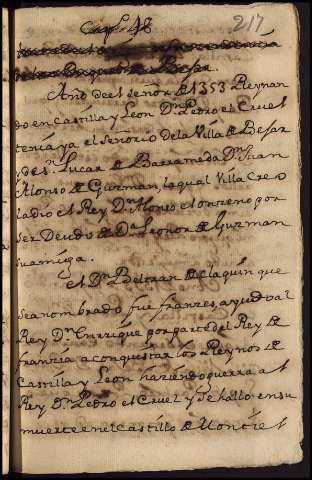 Cap.º 48
217
de Besar.
Año del señor de 1353 Reynan
do en Castilla y Leon Dn Pedro el Cruel
tenia ya el señorio de la Villa de Besar
y de Sn. Lucar de Barrameda Dn Juan
Alonso de Guzman, la qual Villa creo
la dio el Rey Dn Alonso el onzeno por
ser Deudo de Da Leonor de Guzman
su amiga.
El Dn Beltran de Claquin que
se a nombrado fue franzes, ayudo al
Rey Dn Enrrique por parte del Rey de
franzia a conquistar los Reynos de
Castilla y Leon haziendo guerra a el
Rey Dn Pedro el Cruel y se hallo en su
muerte en el Castillo de Montiel